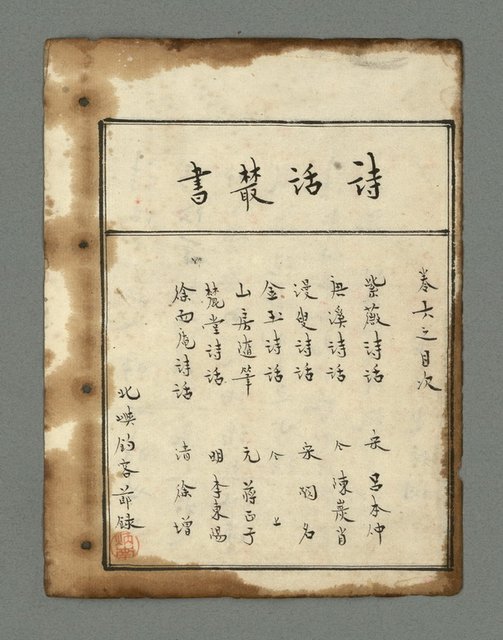 詩話叢書
卷六之目次
紫薇詩話 宋 呂本中
唐溪詩話 仝 陳巖肖
漫叟詩話 宋 闕名
金玉詩話 仝 上
山房隨筆 元 蔣正子
麓堂詩話 明 李東陽
徐而庵詩話 清 徐增
北 釣客 節錄